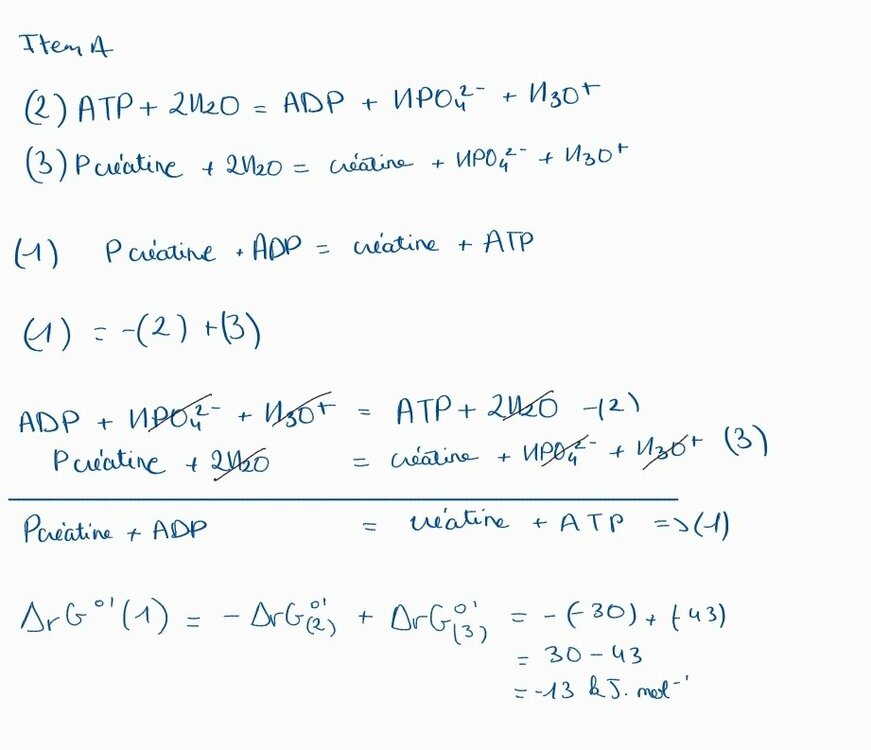 Item A
(2) ATP + 2H2O = ADP + HPO4²⁻ + H3O⁺
(3) Pcréatine + 2H2O = créatine + HPO4²⁻ + H3O⁺
(1) Pcréatine + ADP = créatine + ATP
(1) = -(2) + (3)
ADP + HPO4²⁻ + H3O⁺ = ATP + 2H2O -(2)
Pcréatine + 2H2O = créatine + HPO4²⁻ + H3O⁺ (3)
Pcréatine + ADP = créatine + ATP => (1)
ΔrG°'(1) = - ΔrG°'(2) + ΔrG°'(3) = - (-30) + (-43)
= 30 - 43
= -13 kJ.mol⁻¹